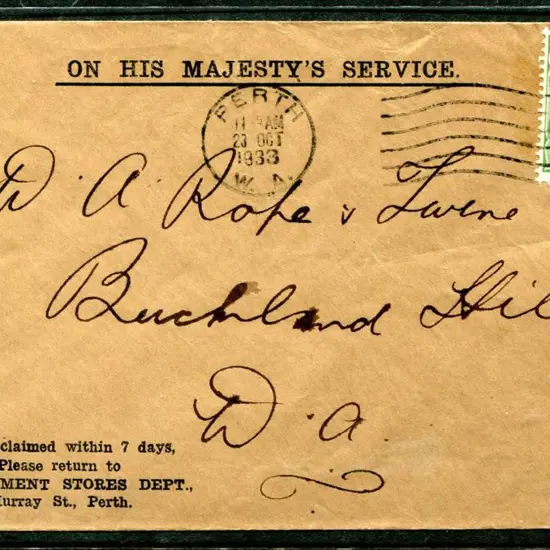 ON HIS MAJESTY'S SERVICE.
PERTH
11 AM
23 OCT
1933
W. A.
W A Rope & Twine
Buckland Hil
W. a.
claimed within 7 days,
Please return to
MENT STORES DEPT.,
Murray St., Perth.